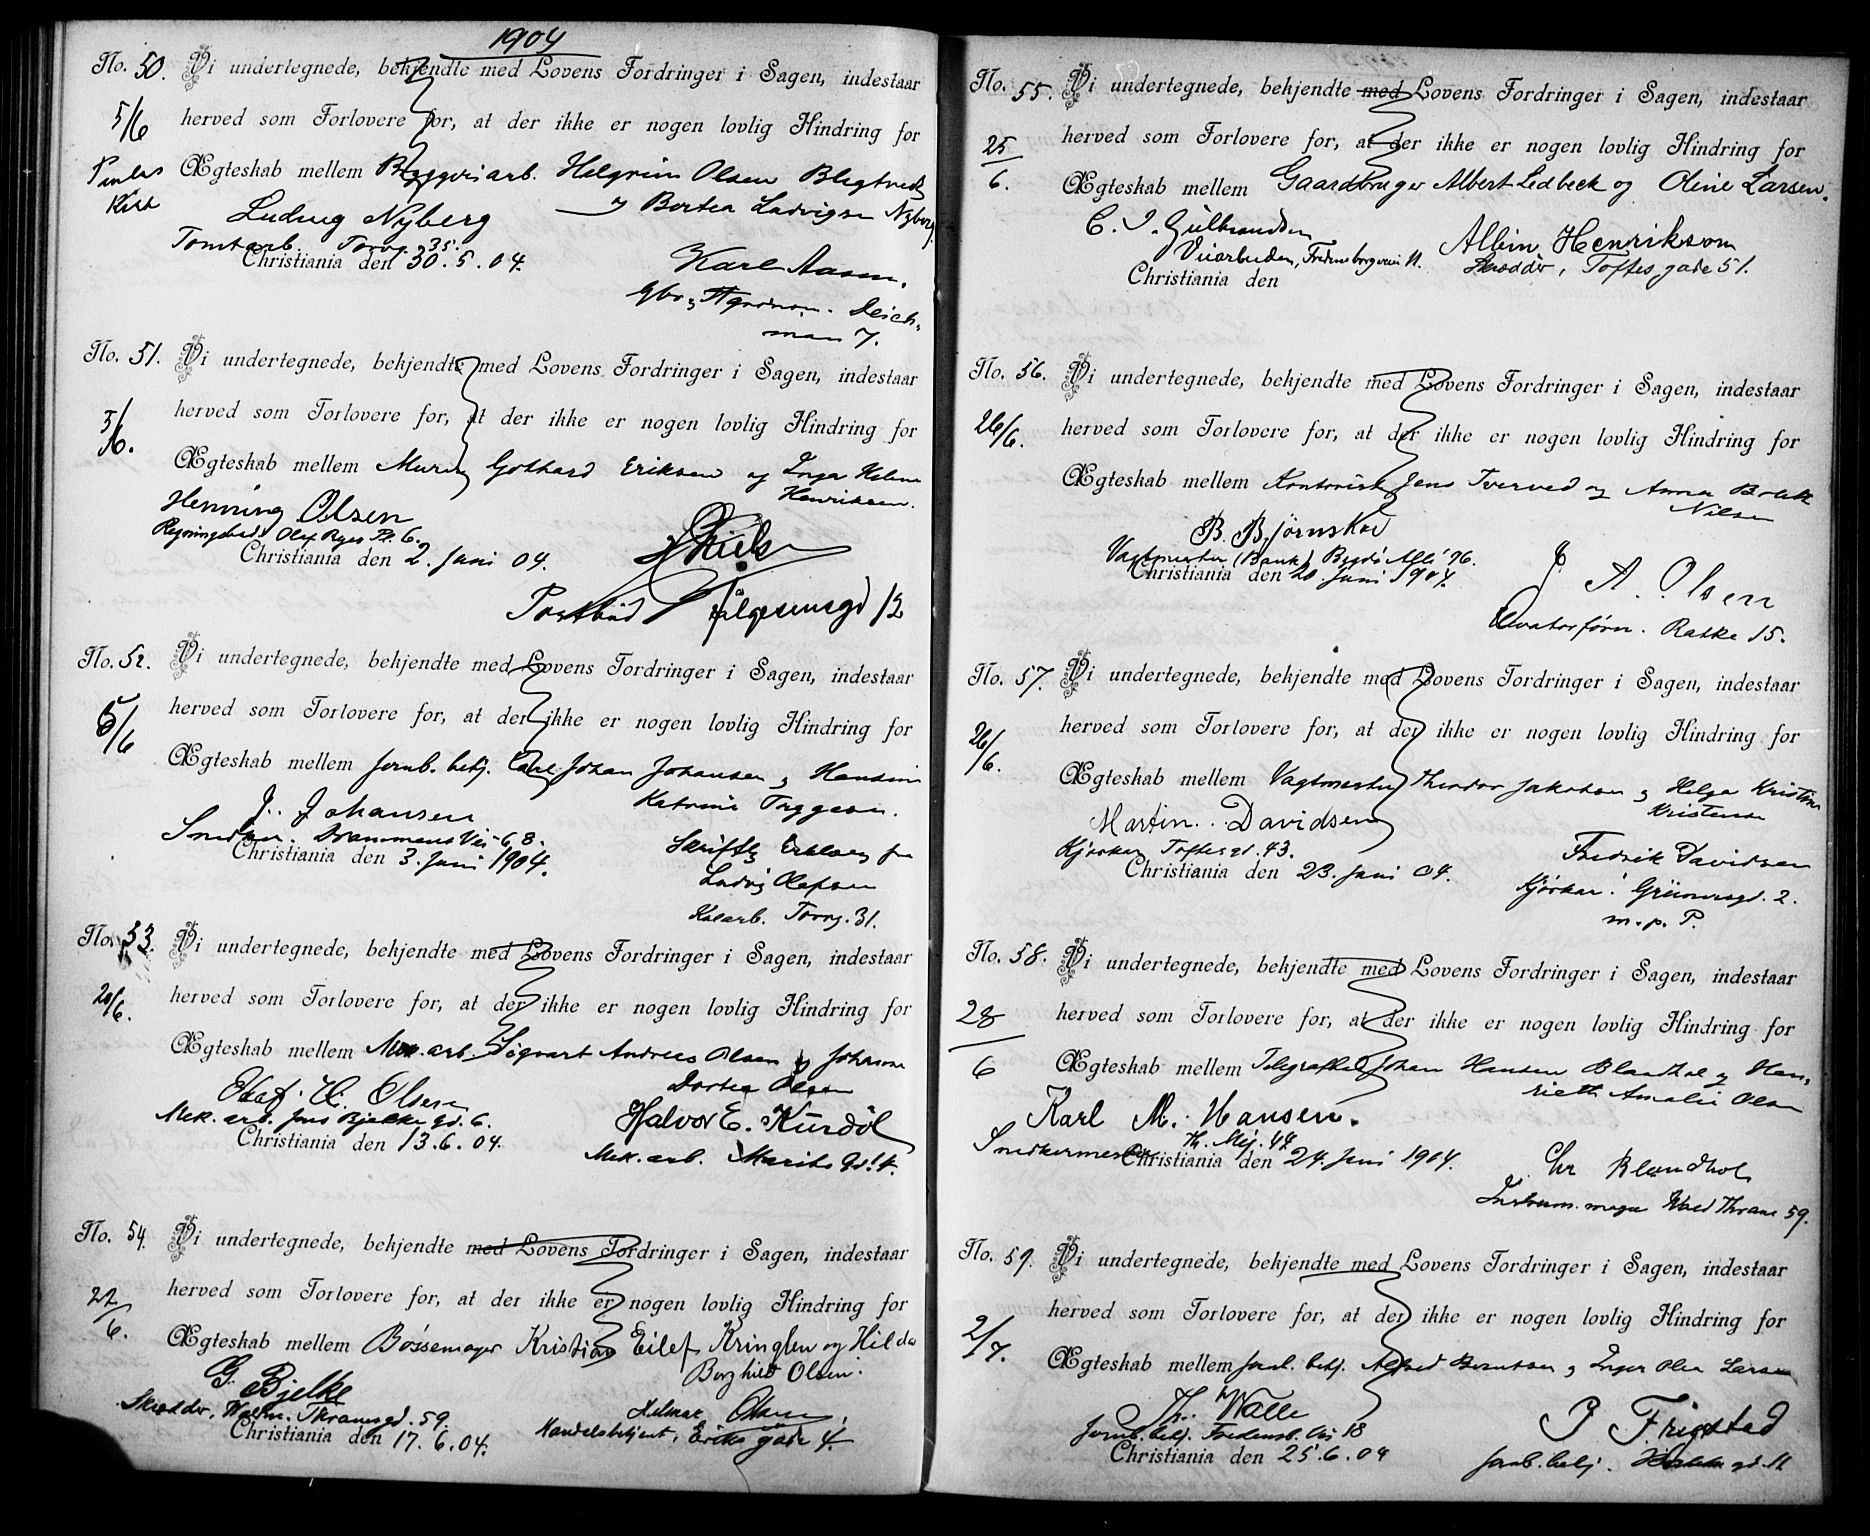 1904
No. 50. Vi undertegnede, bekjendte med Lovens Fordringer i Sagen, indestaar
5/6 herved som Forlovere for, at der ikke er nogen lovlig Hindring for
Ægteskab mellem Bryggeriarb. Helgrim Olsen Blegtvedt
og Bertea Ludvigsen Nyborg.
Ludvig Nyberg
Tomtarb. Torvg. 35.
Christiania den 30.5.04.
Karl Aasen,
Gbr. og Agronom. Deich-
man 7.
No. 51. Vi undertegnede, bekjendte med Lovens Fordringer i Sagen, indestaar
5/6. herved som Forlovere for, at der ikke er nogen lovlig Hindring for
Ægteskab mellem Murer Gothard Eriksen og Inga Helene
Henriksen.
Henning Olsen
Olaf Ryes Pl. 6.
Christiania den 2. Juni 04.
Postbud 12
No. 52. Vi undertegnede, bekjendte med Lovens Fordringer i Sagen, indestaar
5/6 herved som Forlovere for, at der ikke er nogen lovlig Hindring for
Ægteskab mellem Jernb. betj. Carl Johan Johansen og Hansine
Katrine Tryggesen.
J. Johansen
Snedker. Drammens Vei 68.
Christiania den 3. Juni 1904.
Skriftlig Erklæring fra
Ludvig Olafsen
Torvg. 31.
No. 53. Vi undertegnede, bekjendte med Lovens Fordringer i Sagen, indestaar
20/6. herved som Forlovere for, at der ikke er nogen lovlig Hindring for
Ægteskab mellem Mek. arb. Sigvart Andreas Olsen og Johanne
Dortea Olsen
Olaf. H. Olsen
Mek. arb. Jens Bjelkes gd. 6.
Christiania den 13.6.04.
Halvor E. Kurdøl
Mek. arb. Marits gd. 4.
No. 54. Vi undertegnede, bekjendte med Lovens Fordringer i Sagen, indestaar
22/6. herved som Forlovere for, at der ikke er nogen lovlig Hindring for
Ægteskab mellem Bøssemager Kristian Eilef Kringlen og Hilda
Borghild Olsen.
G. Bjelke
Skrædder, Walm. Thranesgd. 59.
Christiania den 17.6.04.
Hilmar Olsen,
Handelsbetjent, Eriks gade 4.
No. 55. Vi undertegnede, bekjendte med Lovens Fordringer i Sagen, indestaar
25/6. herved som Forlovere for, at der ikke er nogen lovlig Hindring for
Ægteskab mellem Gaardbruger Albert Ledbeck og Oline Larsen.
C. J. Gulbrandsen
Veiarbeider, Fredensborgveien 11.
Christiania den
Albin Henrikson
Skrædder, Toftes gade 51.
No. 56. Vi undertegnede, bekjendte med Lovens Fordringer i Sagen, indestaar
26/6. herved som Forlovere for, at der ikke er nogen lovlig Hindring for
Ægteskab mellem Kontorist Jens Tverved og Anna Bolette
Nilsen
B. Bjørnskov
Vagtmester (Bank) Bygdø Allé 76.
Christiania den 20. Juni 1904.
J. A. Olsen
Elevatorførn. Ratke 15.
No. 57. Vi undertegnede, bekjendte med Lovens Fordringer i Sagen, indestaar
26/6. herved som Forlovere for, at der ikke er nogen lovlig Hindring for
Ægteskab mellem Vagtmester Theodor Jakobsen og Helga Kristine
Kristensen
Martin. Davidsen
Kjørkar Toftes gd. 43.
Christiania den 23. Juni 04.
Fredrik Davidsen
Kjørkar. Grünersgd. 2.
m. p. P.
No. 58. Vi undertegnede, bekjendte med Lovens Fordringer i Sagen, indestaar
28/6 herved som Forlovere for, at der ikke er nogen lovlig Hindring for
Ægteskab mellem Telegrafbud Johan Hansen Blandhol og Hen-
riette Amalie Olsen
Karl M. Hansen.
Snedkermester Th. Mej. 44.
Christiania den 24. Juni 1904.
Chr Blandhol
Instrum. mager Wald Thrane 59.
No. 59. Vi undertegnede, bekjendte med Lovens Fordringer i Sagen, indestaar
2/7. herved som Forlovere for, at der ikke er nogen lovlig Hindring for
Ægteskab mellem Jernb. betj. Alfred Berntsen og Inger Olea Larsen
Th. Walle
Jernb. betj. Fredensb. Vei 18
Christiania den 25.6.04
P Frigstad
Jernb. betj. gd. 11